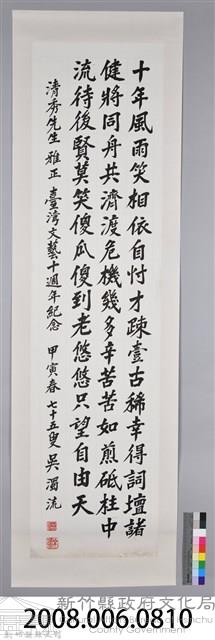 十年風雨笑相依自忖才疎壹古稀幸得詞壇諸
健將同舟共濟渡危機幾多辛苦苦如煎砥柱中
流待後賢莫笑傻瓜傻到老悠悠只望自由天
清秀先生 雅正 臺灣文藝十週年紀念 甲寅春 七十五叟 吳濁流
新竹縣政府文化局
County Government
2008.006.0810